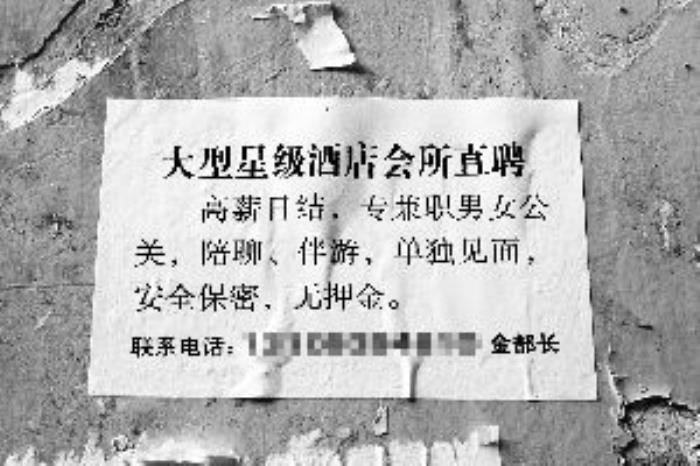 大型星级酒店会所直聘
高薪日结，专兼职男女公
关，陪聊、伴游，单独见面，
安全保密，无押金。
联系电话： 金部长